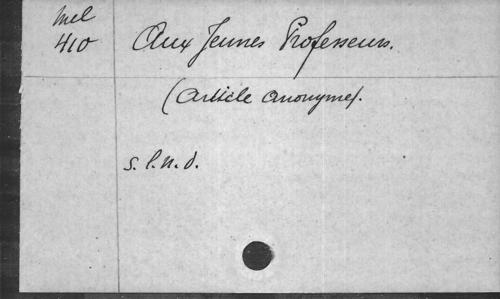 Mel
410
Aux Jeunes Professeurs.
(Article anonyme).
s. l. n. d.